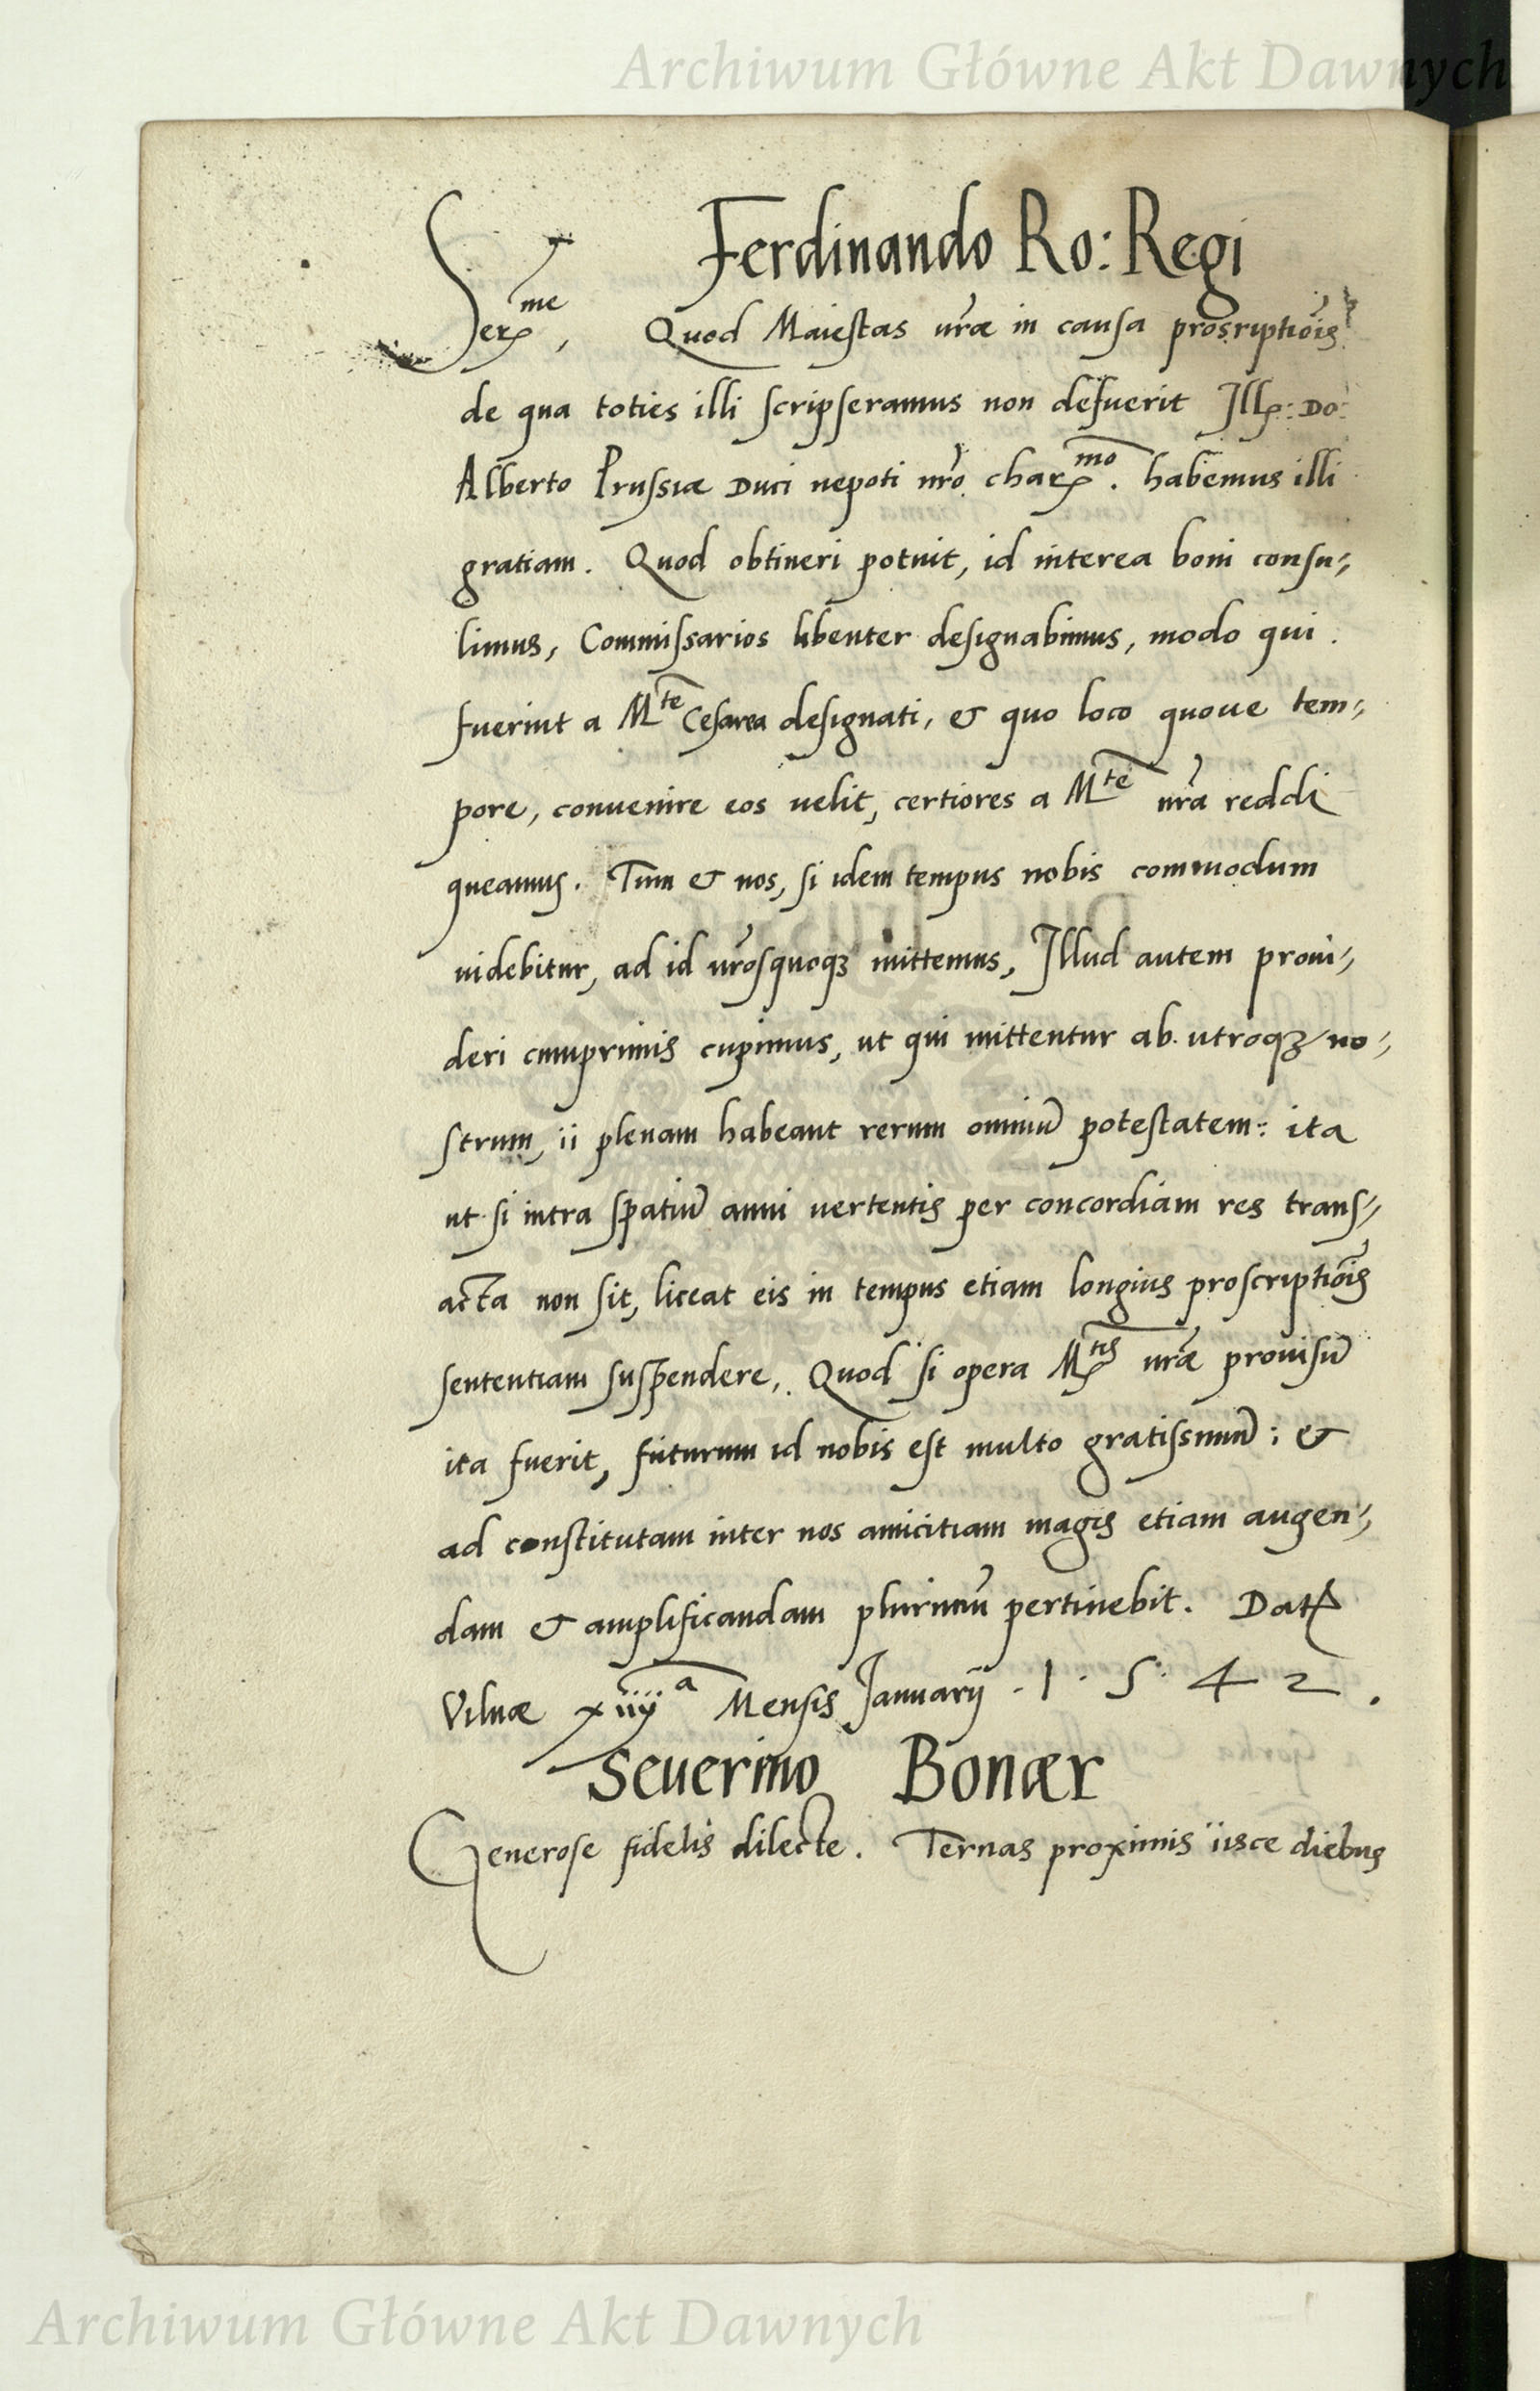 Archiwum Główne Akt Dawnych
Ferdinando Ro: Regi
Ser^me, Quod Maiestas vr̃æ in causa prosriptiõis
de qua toties illi scripseramus non defuerit Ill: Do:
Alberto Prussiæ Duci nepoti nr̃o char^mo. habemus illi
gratiam. Quod obtineri potuit, id interea boni consu-
limus, Commissarios libenter designabimus, modo qui
fuerint a M^te Cesarea designati, & quo loco quoue tem-
pore, convenire eos uelit, certiores a M^te vr̃a reddi
queamus. Tum & nos, si idem tempus nobis commodum
uidebitur, ad id nr̃os quoqȝ mittemus, Illud autem proui-
deri cumprimis cupimus, ut qui mittentur ab utroqȝ no-
strum, ii plenam habeant rerum omniũ potestatem: ita
ut si intra spatiũ anni uertentis per concordiam res trans-
acta non sit, liceat eis in tempus etiam longius proscriptiõis
sententiam suspendere. Quod si opera M^tis vr̃æ prouisũ
ita fuerit, futurum id nobis est multo gratissimũ: &
ad constitutam inter nos amicitiam magis etiam augen-
dam & amplificandam plurimũ pertinebit. Datꝭ
Vilnæ xiiij^a Mensis Januarij . 1 . 5 . 4 2 .
Seuerino Bonær
Generose fidelis dilecte. Ternas proximis iisce diebus
Archiwum Główne Akt Dawnych